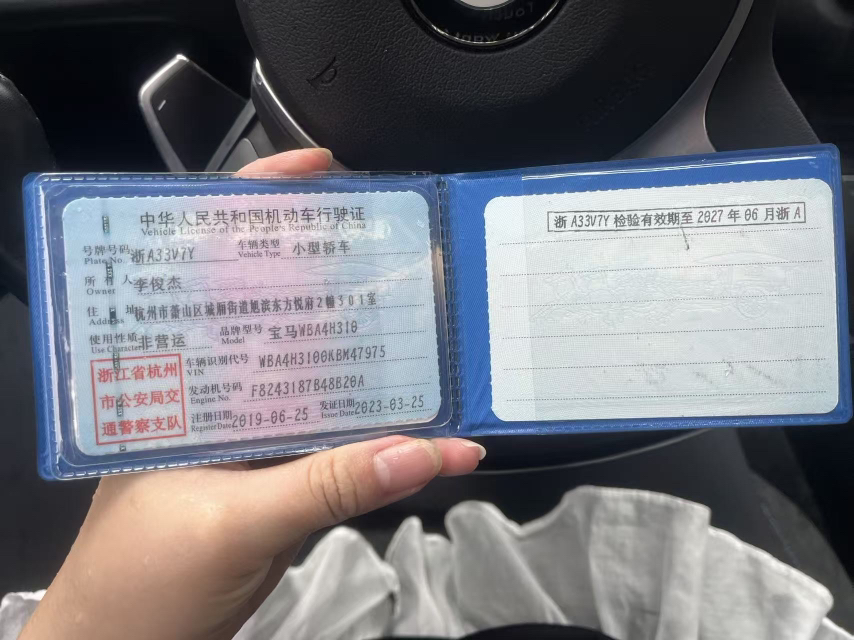 中华人民共和国机动车行驶证
Vehicle License of the People's Republic of China
号牌号码 浙A33V7Y 车辆类型 小型轿车
Plate No. Vehicle Type
所有人 李俊杰
Owner
住址 杭州市萧山区城厢街道旭滨东方悦府2幢301室
Address
使用性质 非营运 品牌型号 宝马WBA4H310
Use Character Model
浙江省杭州
市公安局交
通警察支队
车辆识别代号 WBA4H3100KBM47975
VIN
发动机号码 F8243187B48B20A
Engine No.
注册日期 2019-06-25 发证日期 2023-03-25
Register Date Issue Date
浙A33V7Y 检验有效期至2027年06月浙A